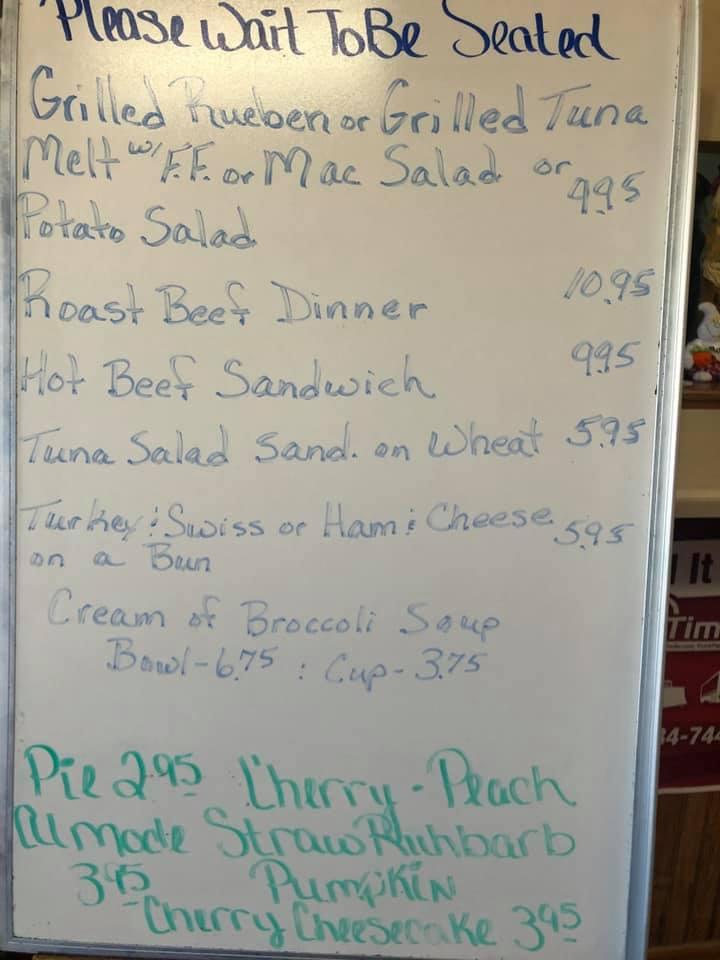 Please Wait To Be Seated
Grilled Rueben or Grilled Tuna
Melt w/ F.F. or Mac Salad or 9.95
Potato Salad
Roast Beef Dinner 10.95
Hot Beef Sandwich 9.95
Tuna Salad Sand. on Wheat 5.95
Turkey & Swiss or Ham & Cheese 5.95
on a Bun
Cream of Broccoli Soup
Bowl - 6.75 : Cup - 3.75
Pie 2.95 Cherry - Peach
Al mode Straw Rhuhbarb
3.95 Pumpkin
Cherry Cheesecake 3.95
It
Tim
34-744